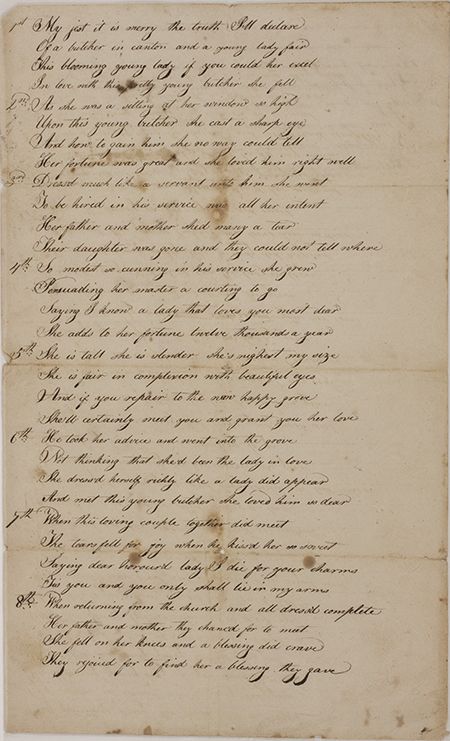 1st My jest it is merry the truth I'll declare
Of a butcher in canton and a young lady fair
This blooming young lady if you could her excel
In love with this pretty young butcher she fell
2nd As she was a sitting at her window so high
Upon this young butcher she cast a sharp eye
And how to gain him she no way could tell
Her fortune was great and she loved him right well
3rd Dressd much like a servant unto him she went
To be hired in his service was all her intent
Her father and mother shed many a tear
Their daughter was gone and they could not tell where
4th So modest so cunning in his service she grew
Persuading her master a courting to go
Saying I know a lady that loves you most dear
She adds to her fortune twelve thousands a year
5th She is tall she is slender she's nighest my size
She is fair in complexion with beautiful eyes
And if you repair to the now happy grove
She'll certainly meet you and grant you her love
6th He took her advice and went into the grove
Not thinking that she'd been the lady in love
She dress'd herself richly like a lady did appear
And met this young butcher she loved him so dear
7th When this loving couple together did meet
The tears fell for joy when he kiss'd her so sweet
Saying dear honour'd lady I die for your charms
Tis you and you only shall lie in my arms
8th When returning from the church and all dress'd complete
Her father and mother they chanced for to meet
She fell on her knees and a blessing did crave
They rejoiced for to find her a blessing they gave